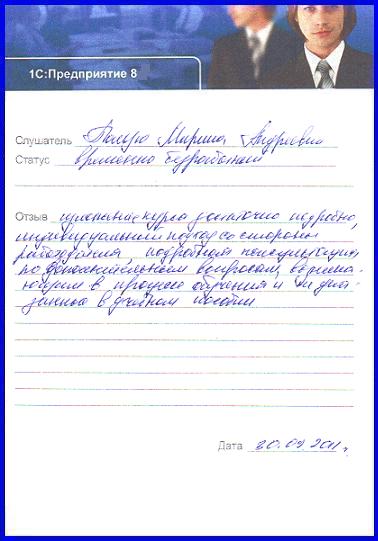 1С:Предприятие 8
Слушатель Марина Андреевна
Статус временно безработная
Отзыв изложение курса достаточно подробно,
индивидуальный подход со стороны
подробная консультация
по дополнительным вопросам, возника-
ющим в процессе обучения и не
в учебном пособии
Дата 30.09.2011г.